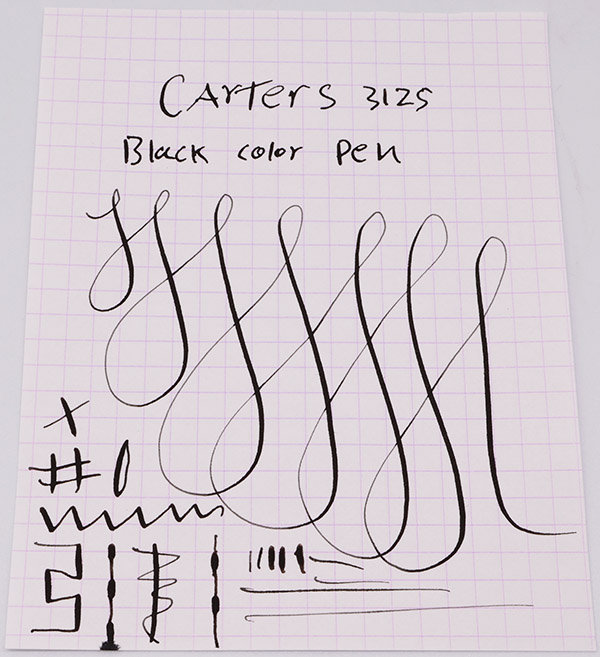 Carters 3125
Black color pen